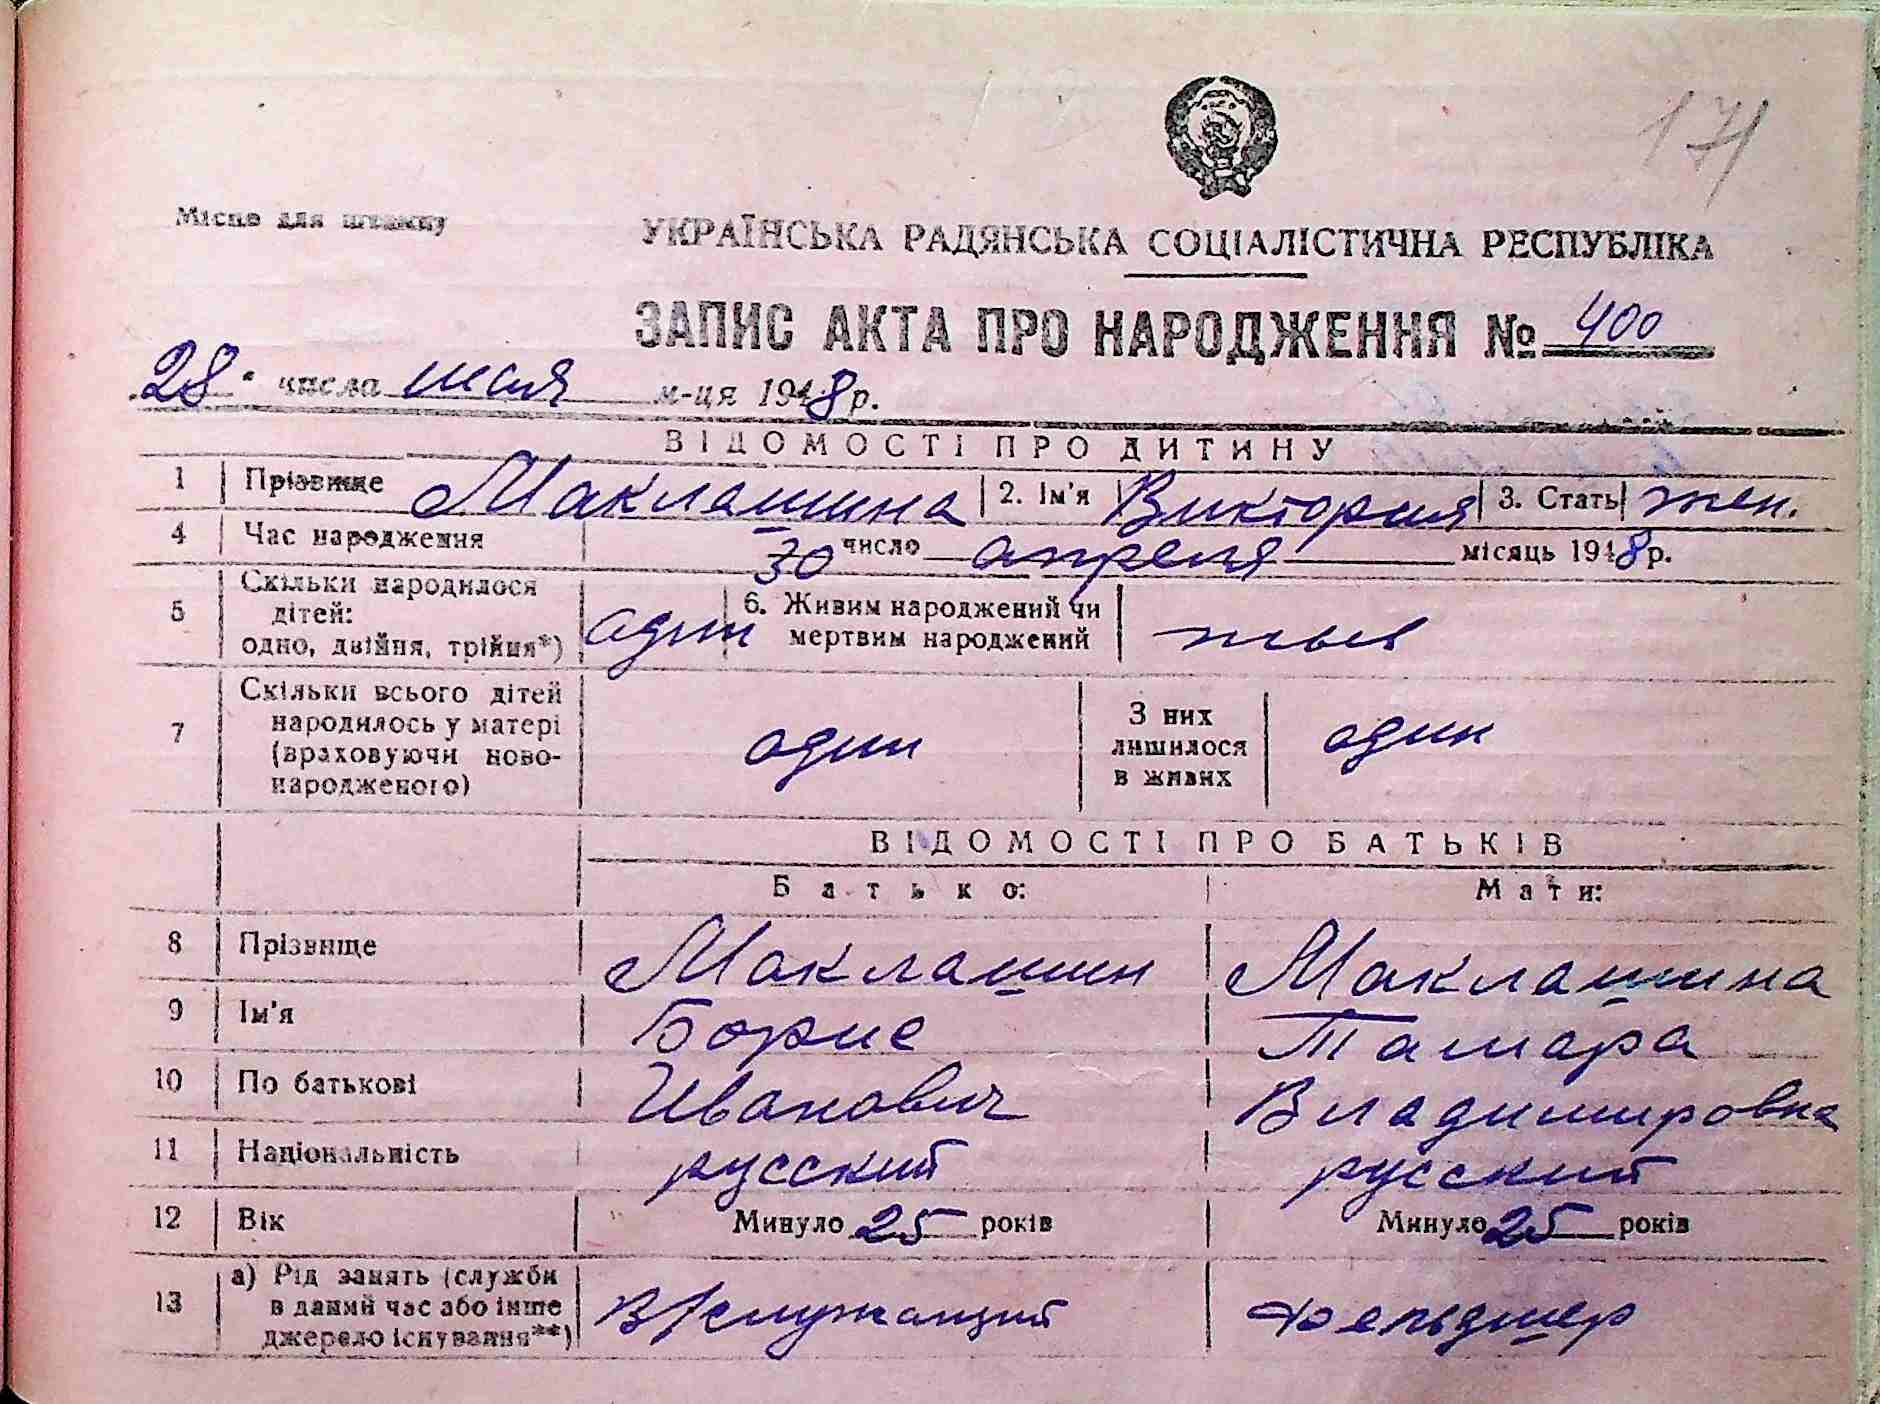 171
Місце для штампу
УКРАЇНСЬКА РАДЯНСЬКА СОЦІАЛІСТИЧНА РЕСПУБЛІКА
ЗАПИС АКТА ПРО НАРОДЖЕННЯ № 400
28 " числа июля м-ця 1948 р.
ВІДОМОСТІ ПРО ДИТИНУ
1 Прізвище Маклашина 2. Ім'я Виктория 3. Стать жен.
4 Час народження 30 число апреля місяць 1948 р.
5 Скільки народилося дітей: одно, двійня, трійня*) один 6. Живим народжений чи мертвим народжений жив
7 Скільки всього дітей народилось у матері (враховуючи новонародженого) один З них лишилося в живих один
ВІДОМОСТІ ПРО БАТЬКІВ
Батько: Мати:
8 Прізвище Маклашин Маклашина
9 Ім'я Борис Тамара
10 По батькові Иванович Владимировна
11 Національність русский русский
12 Вік Минуло 25 років Минуло 25 років
13 а) Рід занять (служби в даний час або інше джерело існування**) В/служащий Фельдшер